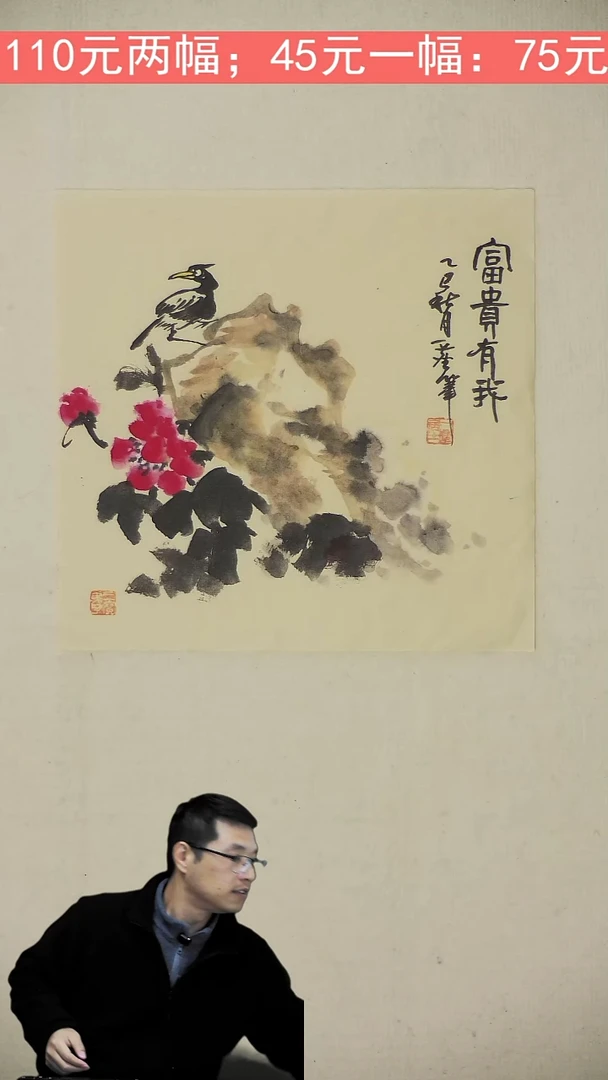 110元两幅；45元一幅：75元
富貴有我
乙巳秋月